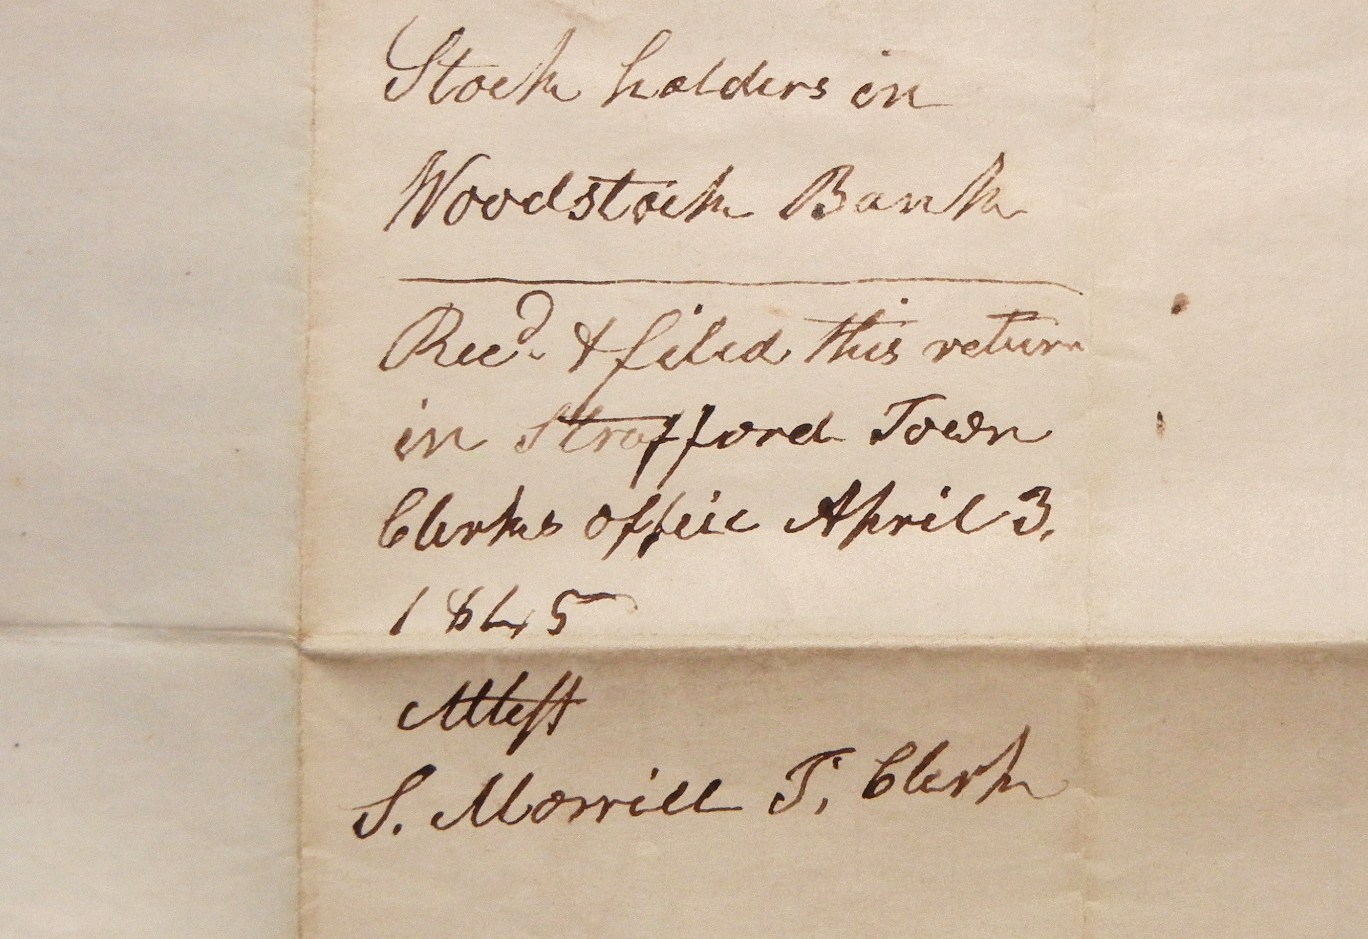 Stock holders in
Woodstock Bank
Recd. & filed this return
in Strafford Town
Clerks office April 3.
1845
Attest
S. Morrill T. Clerk